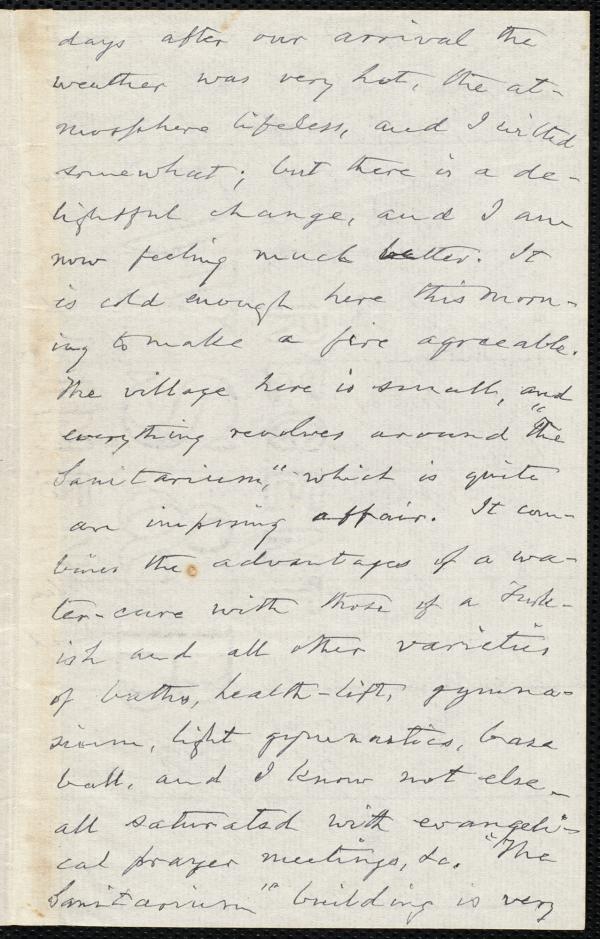 days after our arrival the
weather was very hot, the at-
mosphere lifeless, and I wilted
somewhat; but there is a de-
lightful change, and I am
now feeling much better. It
is cold enough here this morn-
ing to make a fire agreeable.
The village here is small, and
everything revolves around "the
Sanitarium," which is quite
an imposing affair. It com-
bines the advantages of a wa-
ter-cure with those of a Turk-
ish and all other varieties
of baths, health-lift, gymna-
sium, light gymnastics, base
ball, and I know not else,
all saturated with evangeli-
cal prayer meetings, &c. "The
Sanitarium" building is very